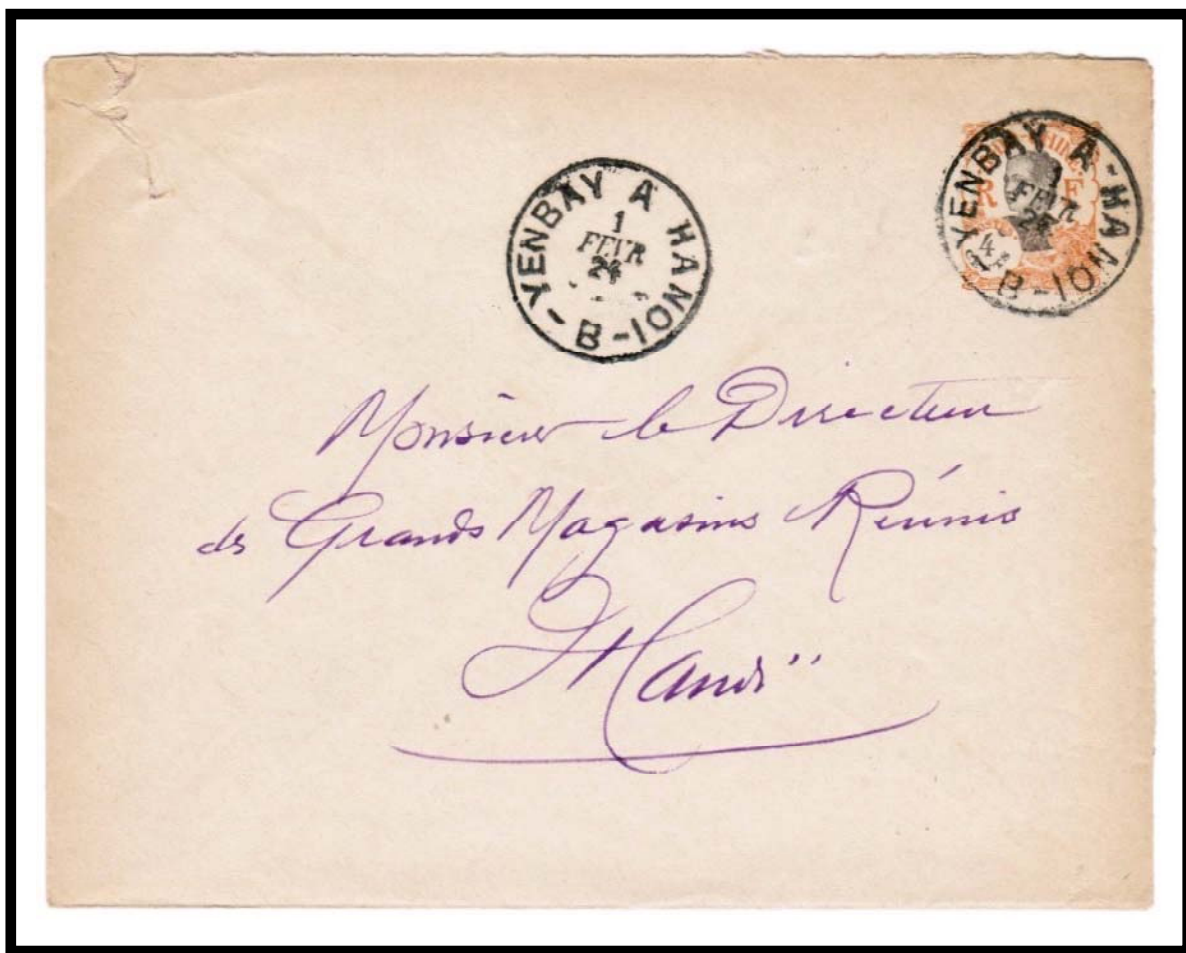 YENBAY A HANOI - B -
1
FEVR
24
INDO-CHINE
R F
4
YENBAY A - HANOI - B
1
FEVR
Monsieur le Directeur
des Grands Magasins Réunis
Hanoï